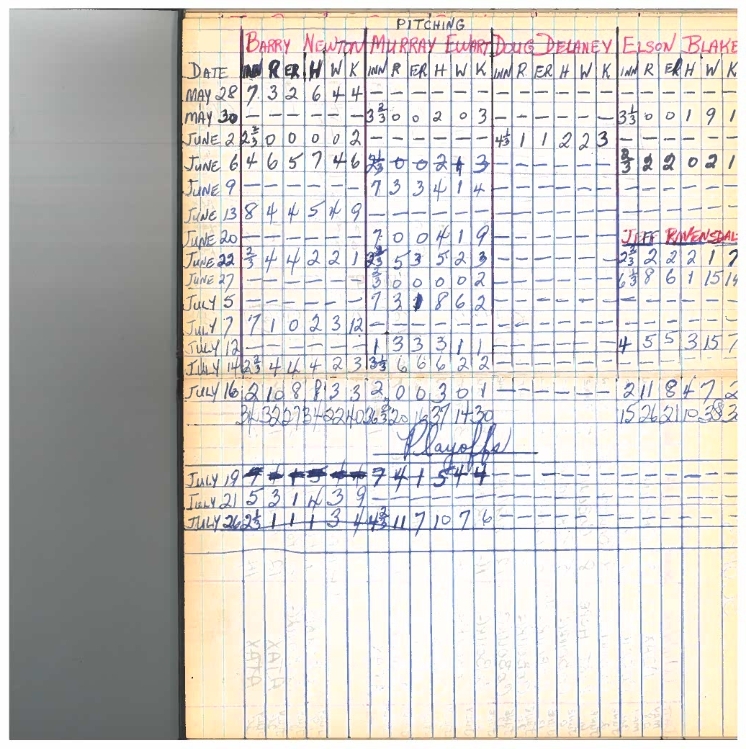 PITCHING
BARRY NEWTON MURRAY EWART DOUG DELANEY ELSON BLAKE
DATE INN R ER H W K INN R ER H W K INN R ER H W K INN R ER H W K
MAY 28 7 3 2 6 4 4 - - - - - - - - - - - - - - - - - -
MAY 30 - - - - - - 3 2/3 0 0 2 0 3 - - - - - - 3 1/3 0 0 1 9 1
JUNE 2 2 2/3 0 0 0 0 2 - - - - - - 4 1/3 1 1 2 2 3 - - - - - -
JUNE 6 4 6 5 7 4 6 2 1/3 0 0 2 1 3 - - - - - - 2/3 2 2 0 2 1
JUNE 9 - - - - - - 7 3 3 4 1 4 - - - - - - - - - - - -
JUNE 13 8 4 4 5 4 9 - - - - - - - - - - - - - - - - - -
JUNE 20 - - - - - - 7 0 0 4 1 9 - - - - - - JEFF
JUNE 22 2/3 4 4 2 2 1 2 2/3 5 3 5 2 3 - - - - - - 2 2/3 2 2 2 1 7
JUNE 27 - - - - - - 2/3 0 0 0 0 2 - - - - - - 6 1/3 8 6 1 15 14
JULY 5 - - - - - - 7 3 1 8 6 2 - - - - - - - - - - - -
JULY 7 7 1 0 2 3 12 - - - - - - - - - - - - - - - - - -
JULY 12 - - - - - - 1 3 3 3 1 1 - - - - - - 4 5 5 3 15 7
JULY 14 2 2/3 4 4 4 2 3 3 1/3 6 6 6 2 2 - - - - - - - - - - - -
JULY 16 2 10 8 8 3 3 2 0 0 3 0 1 - - - - - - 2 11 8 4 7 2
34 32 27 34 22 40 36 2/3 20 16 37 14 30 15 26 21 10 38
Playoffs
JULY 19 7 4 1 5 4 4 - - - - - - - - - - - -
JULY 21 5 3 1 4 3 9 - - - - - - - - - - - - - - - - - -
JULY 26 2 1/3 1 1 1 3 4 4 2/3 11 7 10 7 6 - - - - - - - - - - - -